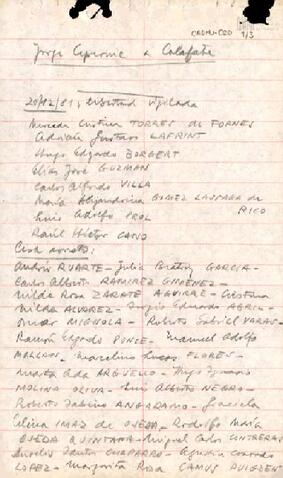 CADHU-C20
1/3
Jorge Cepernic a Calafate
20/12/81, libertad vigilada
Mercedes Cristina TORRES de FORNES
Adrian Gustavo LAFRINT
Hugo Edgardo BORGERT
Elias José GUZMAN
Carlos Alfredo VILLA
María Alejandrina GOMEZ LASSAGA de
RICO
Luis Adolfo PROL
Raúl Héctor CANO
Cese arresto:
Andrés RUARTE - Julia Beatriz GARCIA -
Carlos Alberto RAMIREZ GIMENEZ -
Nilda Rosa ZARATE AGUIRRE - Cristina
Nilda ALVAREZ - Sergio Eduardo ABRIL -
Omar MIGNOLA - Roberto Gabriel VARAS -
Ramón Elgardo PONCE - Manuel Adolfo
- Marcelino Lucas FLORES -
Marta Ada ARGUELLO - Hugo Ignacio
MOLINA OLIVA - Luis Alberto NEGRO -
Roberto Sabino ANGARAMO - Graciela
Celina IMAZ de OJEDA - Rodolfo María
OJEDA QUINTANA - Miguel Carlos CONTRERAS
Aurelio Santos CHAPARRO - Conrado
LOPEZ - Margarita Rosa CAMUS